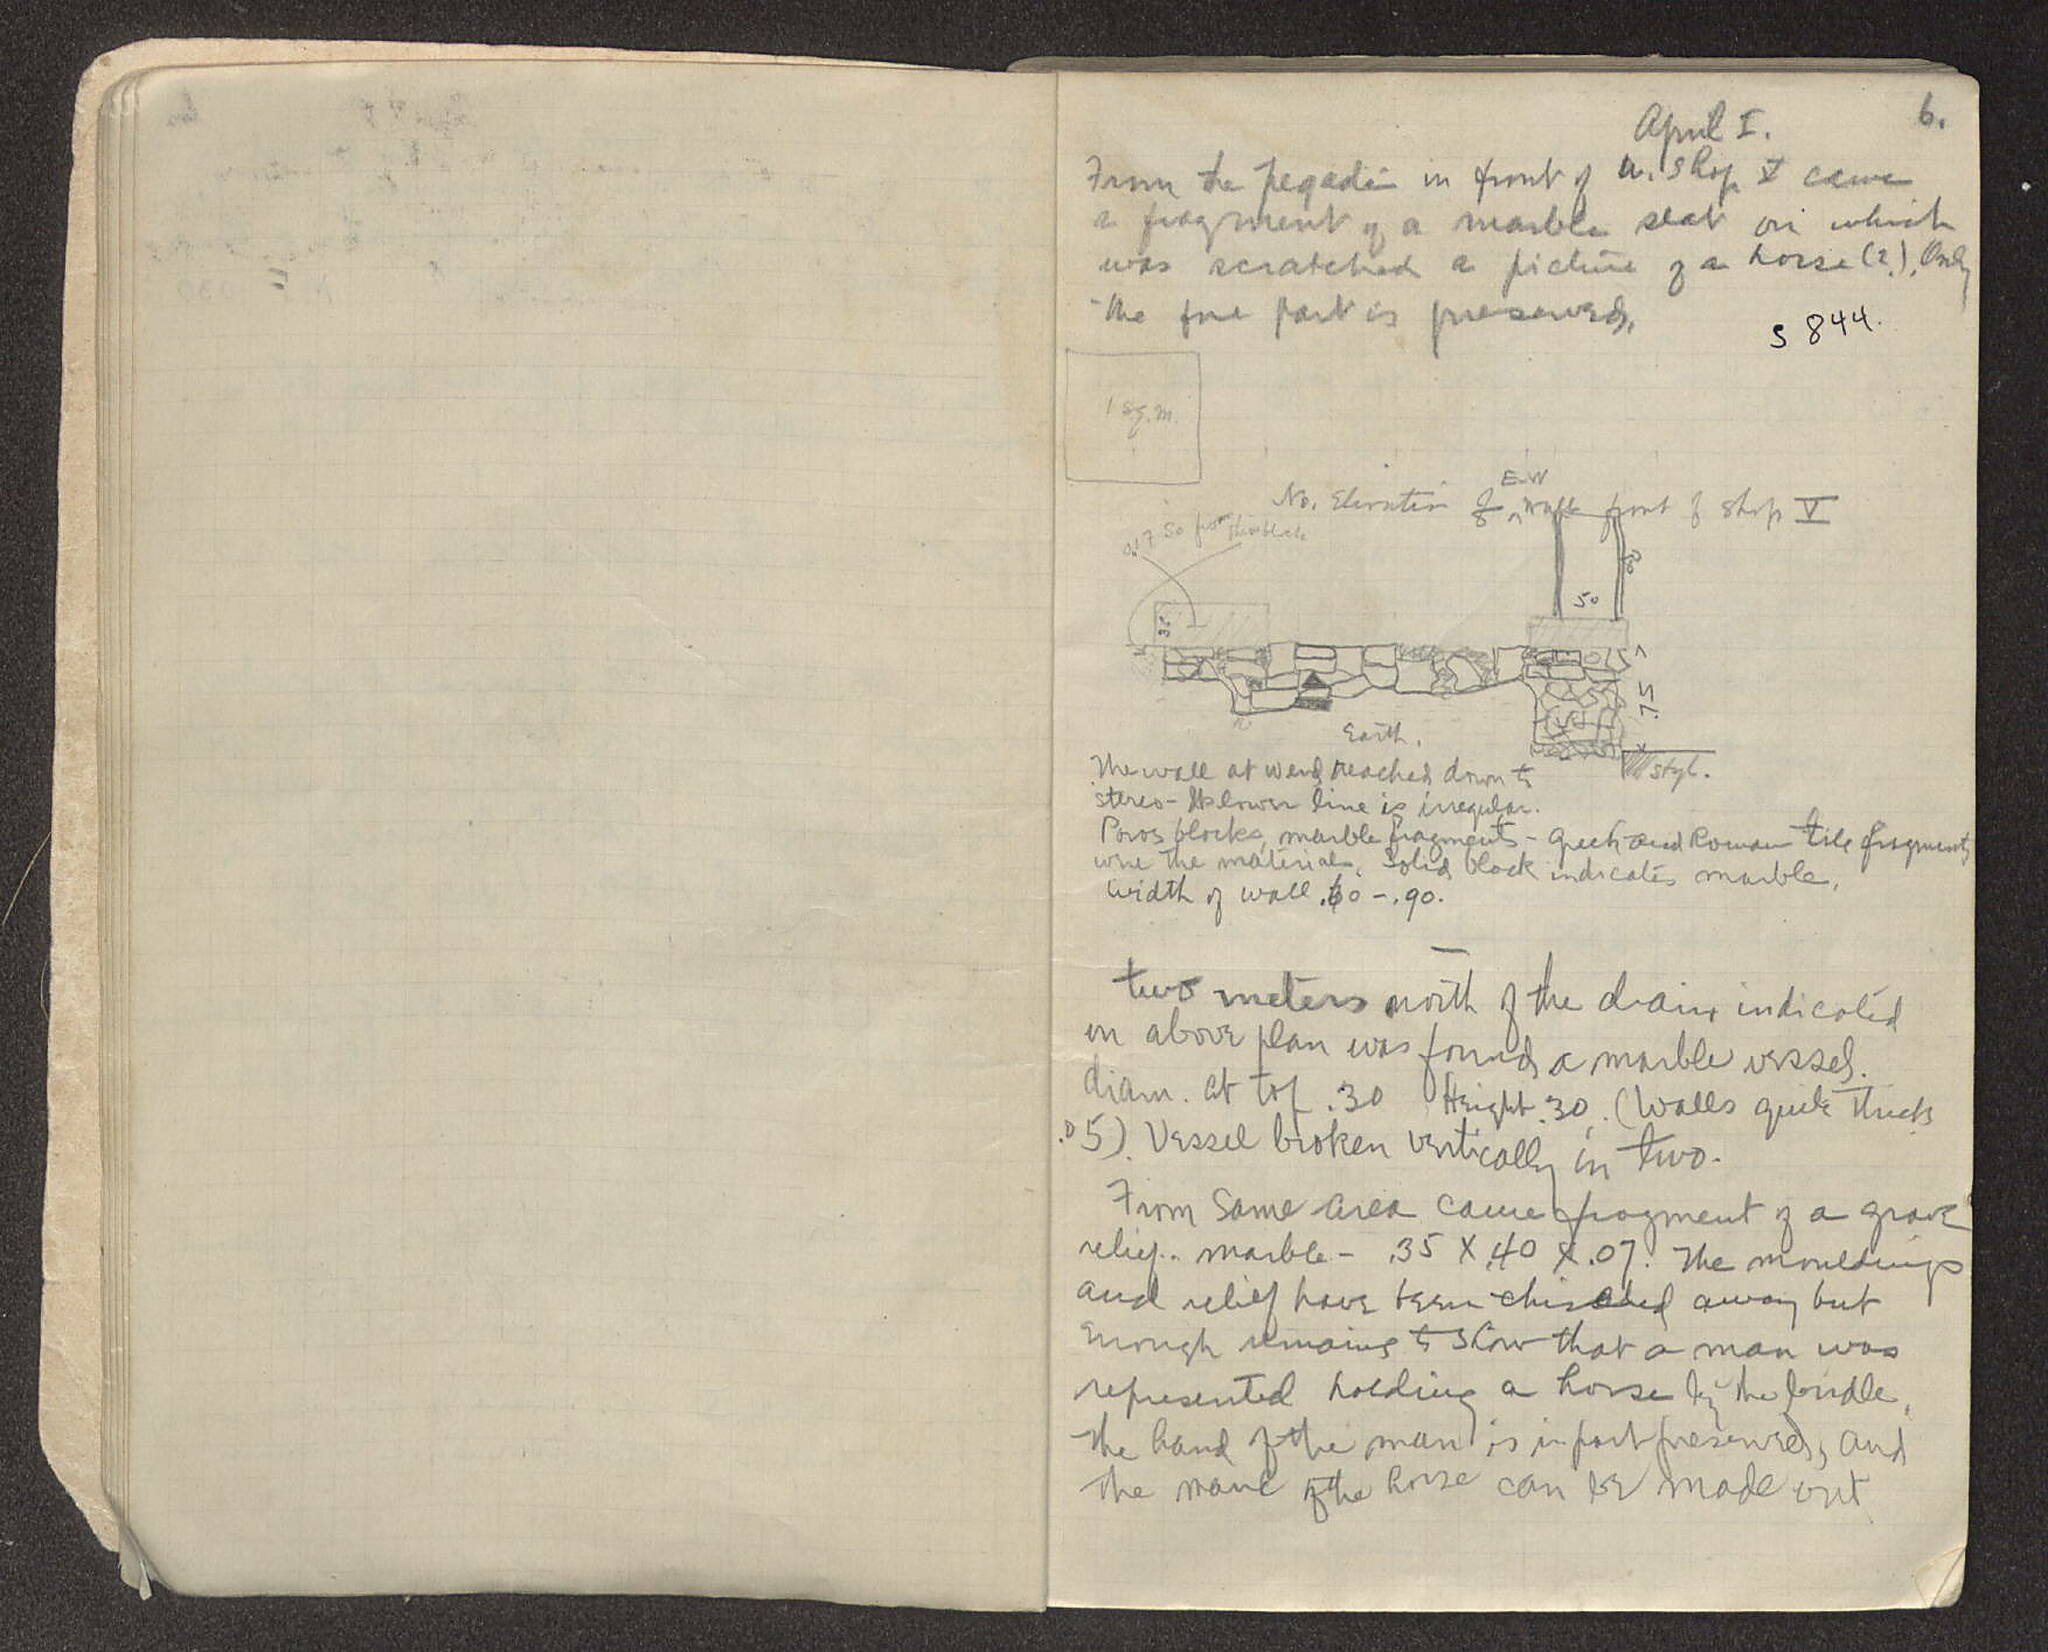 6.
April I.
From the pegadi in front of W. Shop V came
a fragment of a marble seat on which
was scratched a picture of a horse (?). Only
the fore part is preserved.
S 844.
1 sq. m.
No. Elevation of E-W wall front of Shop V
.17 So from
50
.75
Earth.
styl.
The wall at W end reached down to
stereo - Its lower line is irregular.
Poros blocks, marble fragments - Greek and Roman tile fragments
were the material. Solid black indicates marble.
Width of wall .60 - .90.
Two meters north of the drain indicated
in above plan was found a marble vessel.
diam. at top .30 Height .30. (Walls quite thick
.05). Vessel broken vertically in two.
From same area came fragment of a grave
relief. marble - .35 X .40 X .07. The mouldings
and relief have been chiseled away but
enough remains to show that a man was
represented holding a horse by the bridle.
The hand of the man is in part preserved, and
the mane of the horse can be made out